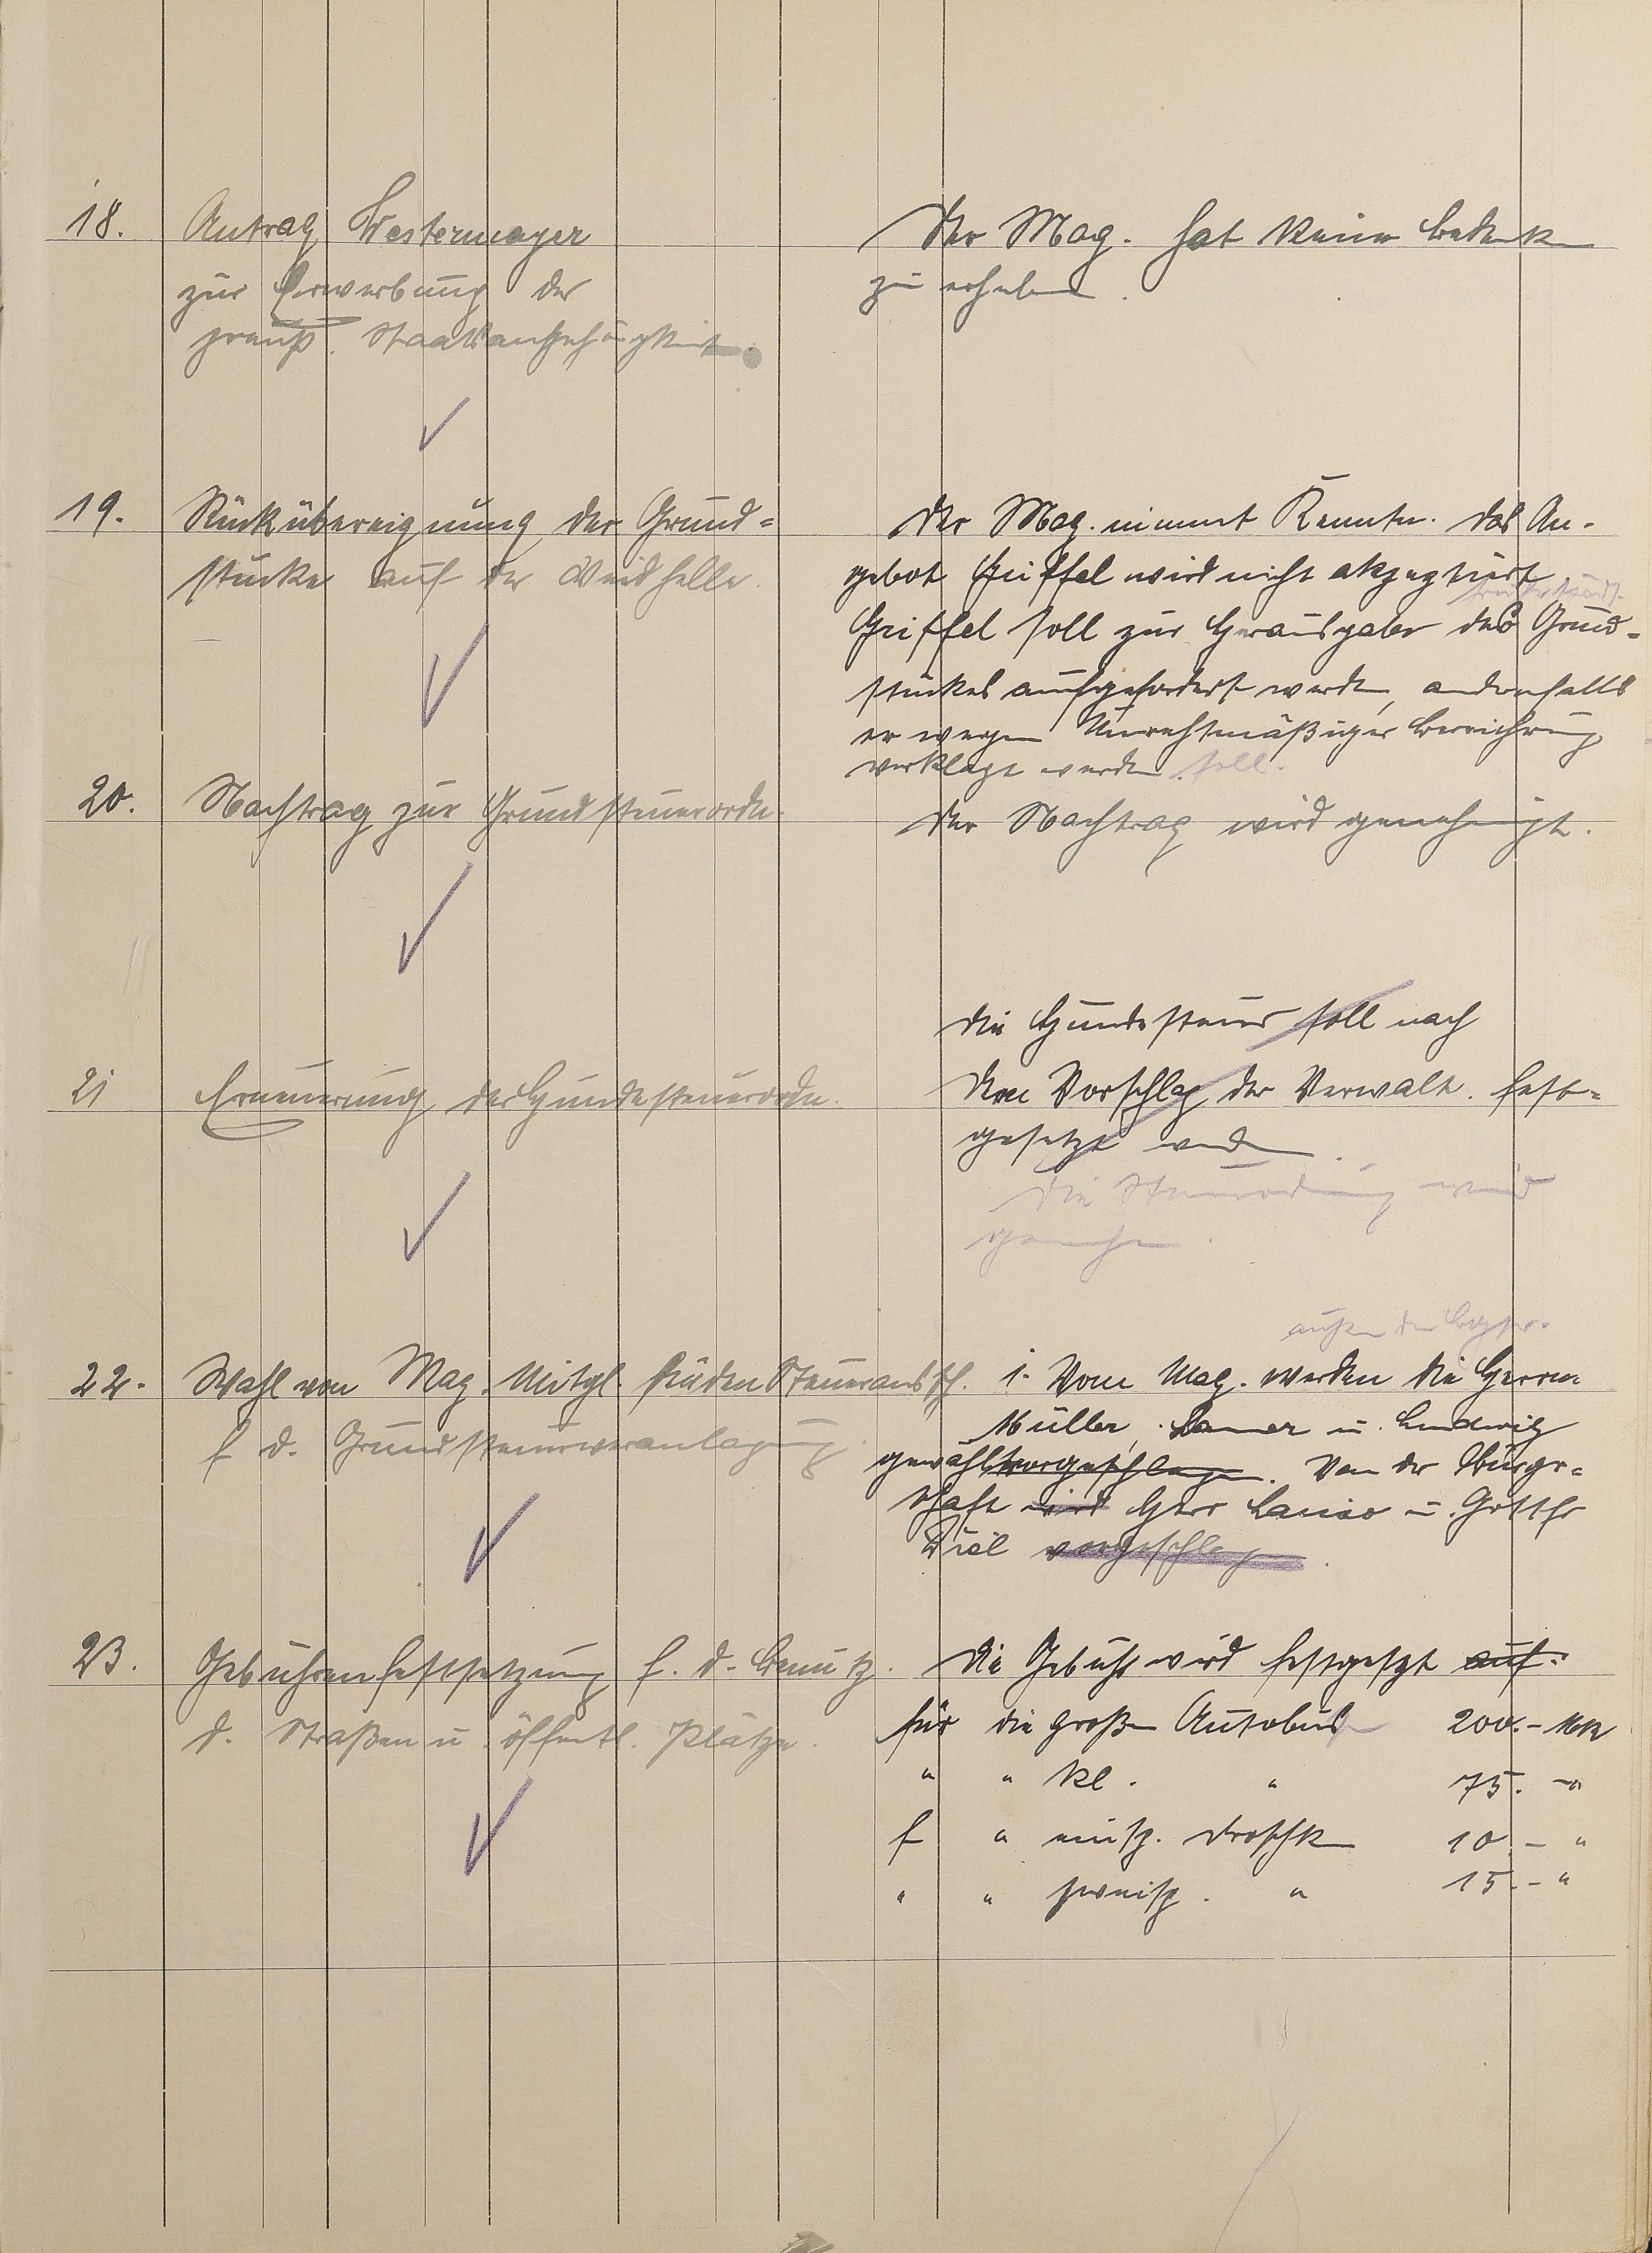 18. Antrag Westermayer
zur Erwerbung der
preuß. Staatsangehörigkeit.
Der Mag. hat keine Bedenken
zu erheben.
19. Rückübereignung der Grund=
stücke auf der Weidhelle.
Der Mag. nimmt Kenntn. Das An-
gebot Griffel wird nicht akzeptiert
Griffel soll zur Herausgabe des Grund-
stückes aufgefordert werden, andernfalls
er wegen Unrechtmäßiger Bereicherung
verklagt werden soll.
20. Nachtrag zur Grundsteuerordn.
Der Nachtrag wird genehmigt.
21 Erneuerung der Hundesteuerordn.
Die Hundesteuer soll nach
dem Vorschlag der Verwalt. fest=
gesetzt werden.
Die Steuerordnung wird
genehm.
22. Wahl von Mag. Mitgl. für den Steueraussch.
f. d. Grundsteuerveranlagung.
außer dem
1. Vom Mag. werden die Herren
Müller, u. Ludwig
gewählt vorgeschlagen. Von der Bürger=
schaft wird Herr u. Gottfr
Diel vorgeschlagen.
23. Gebührenfestsetzung f. d. Benutz.
d. Straßen u. öffentl. Plätze.
Die Gebühr wird festgesetzt auf.
für die großen Autobusse 200.- Mk
" " kl. " 75.- "
f " einsp. Droschken 10.- "
" " zweisp. " 15.- "